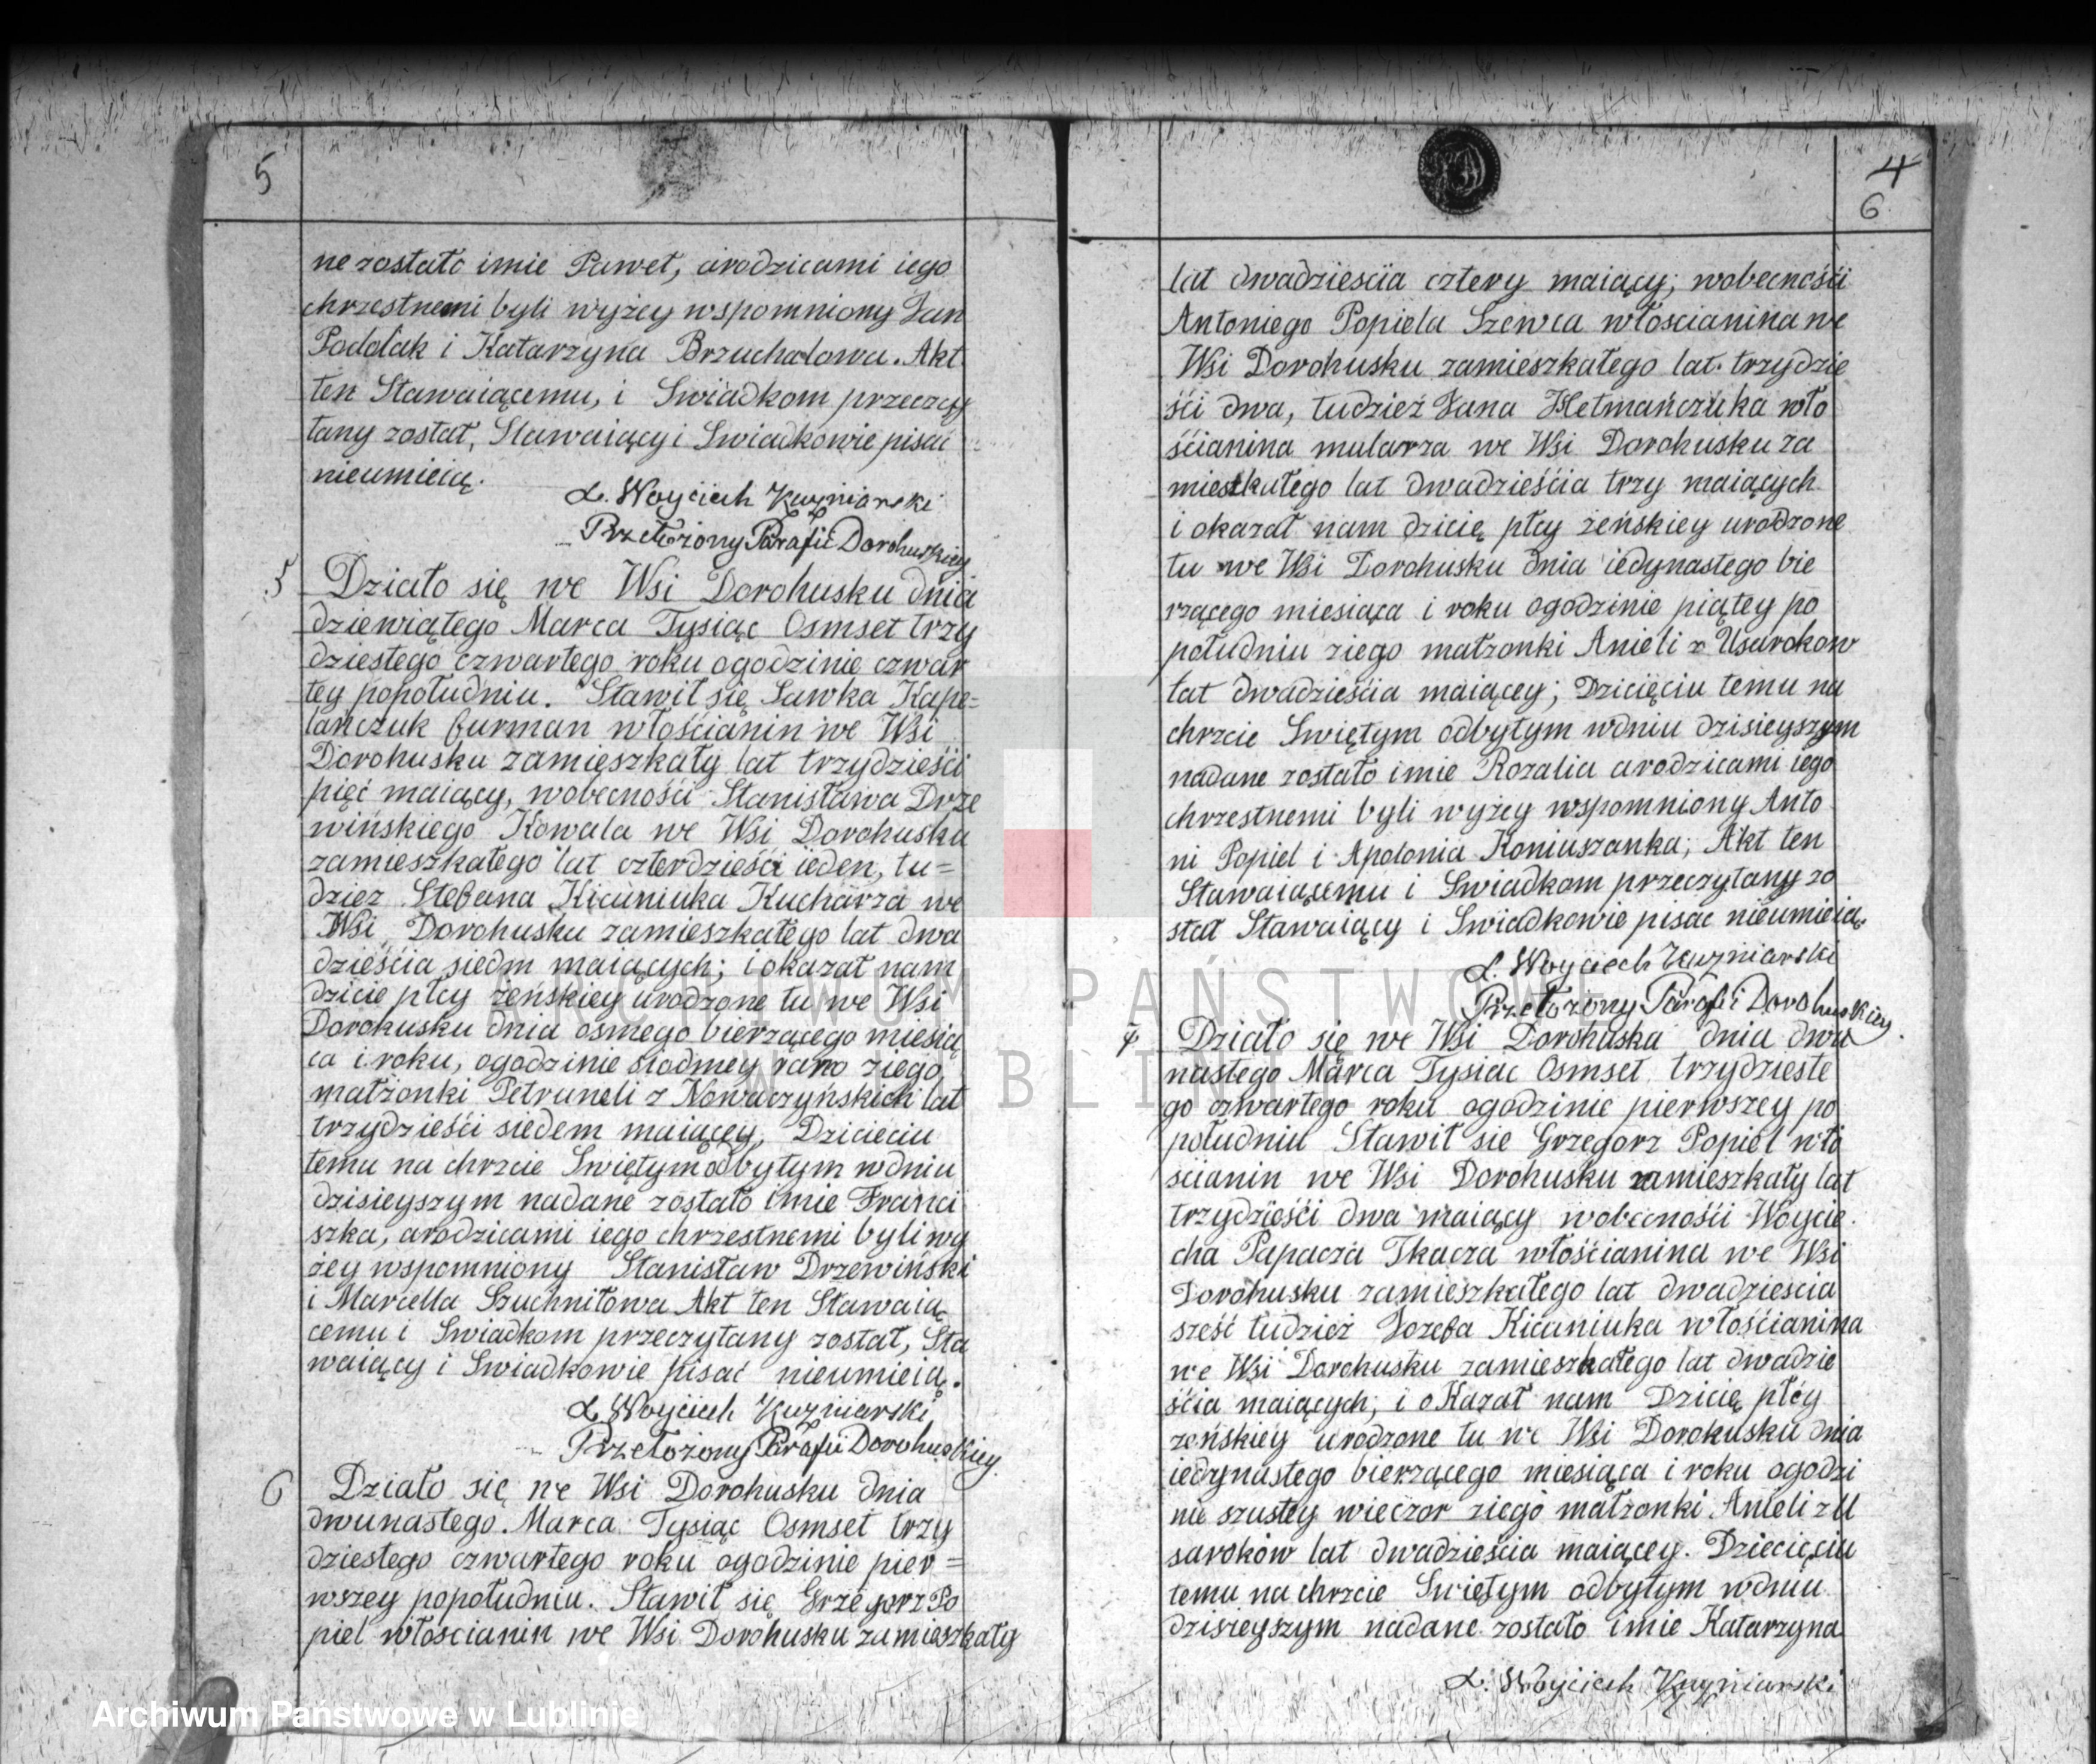 5
ne zostało imie Paweł, arodzicami iego
chrzestnemi byli wyżey wspomniony Jan
Poddak i Katarzyna Brzuchalowa. Akt
ten Stawaiącemu, i Swiadkom przeczy
tany został, Stawaiący i Swiadkowie pisać
nieumieią.
X. Woyciech Kuzniarski
Przełożony Parafii Dorohuskiey
5 Działo się we Wsi Dorohusku dnia
dziewiątego Marca Tysiąc Osmset trzy
dziestego czwartego roku ogodzinie czwar
tey popołudniu. Stawił się Sawka Kape=
lańczuk furman włościanin we Wsi
Dorohusku zamieszkały lat trzydzieści
pięć maiący, wobecności Stanisława Drze
wińskiego Kowala we Wsi Dorohusku
zamieszkałego lat czterdzieści ieden, tu=
dzież Stefana Kicuniuka Kucharza we
Wsi Dorohusku zamieszkałego lat dwa
dzieścia siedm maiących; i okazał nam
dzicie płcy żeńskiey urodzone tu we Wsi
Dorohusku dnia osmego bierzącego miesią
ca i roku, ogodzinie siodmey rano ziego
małżonki Petruneli z Nowaczyńskich lat
trzydzieści siedem maiącey, Dziecieciu
temu na chrzcie Swiętym odbytym wdniu
dzisieyszym nadane zostało imie Franci
szka, arodzicami iego chrzestnemi byli wy
żey wspomniony Stanisław Drzewiński
i Marcella Szuchniłowa Akt ten Stawaią
cemu i Swiadkom przeczytany został, Sta
waiący i Swiadkowie pisać nieumieią.
X Woyciech Kuzniarski
Przełożony Parafii Dorohuskiey
6 Działo się we Wsi Dorohusku dnia
dwunastego Marca Tysiąc Osmset trzy
dziestego czwartego roku ogodzinie pier=
wszey popołudniu. Stawił się Grzegorz Po
piel włoscianin we Wsi Dorohusku zamieszkały
4
6
lat dwadziescia cztery maiący; wobecności
Antoniego Popiela Szewca włoscianina we
Wsi Dorohusku zamieszkałego lat trzydzie
ści dwa, tudzież Jana Hetmańczuka wło
ścianina mularza we Wsi Dorohusku za
mieszkałego lat dwadzieścia trzy maiących
i okazał nam dzicię płcy żeńskiey urodzone
tu we Wsi Dorohusku dnia iedynastego bie
rzącego miesiąca i roku ogodzinie piątey po
południu ziego małżonki Anieli z Usarokow
lat dwadzieścia maiącey; Dzicięciu temu na
chrzcie Swiętym odbytym wdniu dzisieyszym
nadane zostało imie Rozalia arodzicami iego
chrzestnemi byli wyżey wspomniony Anto
ni Popiel i Apolonia Koniuszanka; Akt ten
Stawaiącemu i Swiadkom przeczytany zo
stał Stawaiący i Swiadkowie pisac nieumieią.
X. Woyciech Kuzniarski
Przełożony Parafii Dorohuskiey.
7 Działo się we Wsi Dorohusku dnia dwu
nastego Marca Tysiac Osmset trzydzieste
go czwartego roku ogodzinie pierwszey po
południu Stawił sie Grzegorz Popiel wło
scianin we Wsi Dorohusku zamieszkały lat
trzydzieści dwa maiący wobecności Woycie
cha Papacza Tkacza włościanina we Wsi
Dorohusku zamieszkałego lat dwadziescia
sześć tudzież Jozefa Kicaniuka włościanina
we Wsi Dorohusku zamieszkałego lat dwadzie
ścia maiących; i oKazał nam Dzicię płcy
żeńskiey urodzone tu we Wsi Dorohusku dnia
iedynastego bierzącego miesiąca i roku ogodzi
nie szustey wieczor ziego małżonki Anieli z U
saroków lat dwadzieścia maiącey. Dziecięciu
temu na chrzcie Swiętym odbytym wdniu
dzisieyszym nadane zostało imie Katarzyna
X. Woyciech Kuzniarski
ARCHIWUM PAŃSTWOWE
W LUBLINIE
Archiwum Państwowe w Lublinie